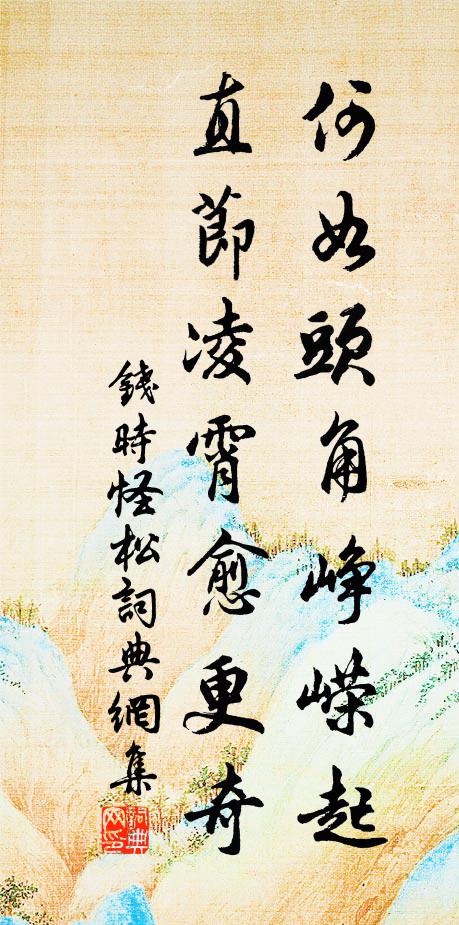 何如頭角崢嶸起
直節凌霄愈更奇
錢時怪松詞典網集
詞典網印